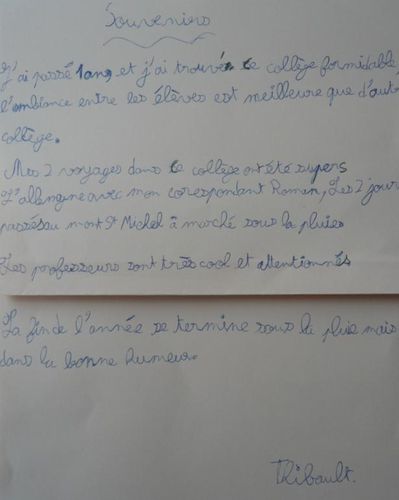 Souvenirs
J'ai passé 1 ans, et j'ai trouvé ce collège formidable,
l'ambiance entre les élèves est meilleure que d'autr
collège.
Mes 2 voyages dans ce collège ont été supers
L'allemgine avec mon corespondant Roman, Les 2 jour
passés au mont St Michel à marché sous la pluies
Les professeurs sont très cool et attentionnés
La fin de l'année se termine sous la pluie mais
dans la bonne humeur.
Thibault.